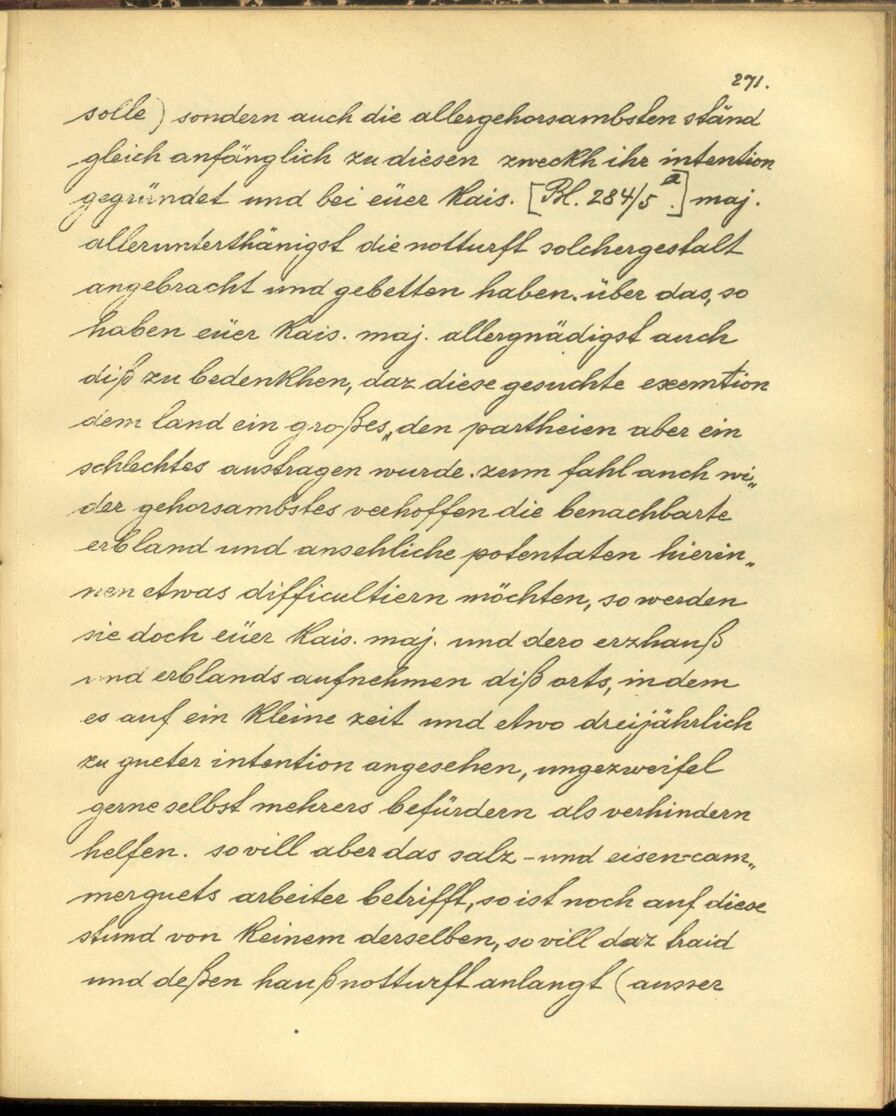 271.
solle) sondern auch die allergehorsambsten ständ
gleich anfänglich zu diesen zweckh ihr intention
gegründet und bei eüer kais. [Bl. 284/5 a.] maj.
allerunterthänigst die notturft solchergestalt
angebracht und gebetten haben. über das, so
haben eüer kais. maj. allergnädigst auch
diß zu bedenkhen, daz diese gesuchte exemtion
dem land ein großes, den partheien aber ein
schlechtes austragen wurde. zum fahl auch wi„
der gehorsambstes verhoffen die benachbarte
erbland und ansehliche potentaten hierin„
nen etwas difficultiern möchten, so werden
sie doch eüer kais. maj. und dero erzhauß
und erblands aufnehmen diß orts, indem
es auf ein kleine zeit und etwo dreijährlich
zu gueter intention angesehen, ungezweifel
gerne selbst mehrers befürdern als verhindern
helfen. sovill aber das salz- und eisen-cam„
merguets arbeiter betrifft, so ist noch auf diese
stund von keinem derselben, sovill daz traid
und deßen haußnotturft anlangt (ausser